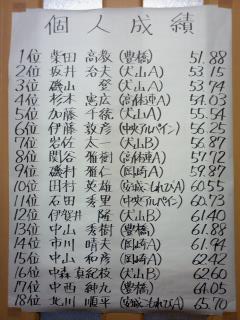 個人成績
1位 柴田 高教 (豊橋) 51.88
2位 坂井 治夫 (犬山A) 53.15
3位 磯山 登 (犬山A) 53.74
4位 杉本 憲広 (A) 54.03
5位 加藤 千統 (犬山A) 55.54
6位 伊藤 敦彦 (中央アルパイン) 56.25
7位 岩佐 太一 (犬山B) 56.87
8位 関谷 雅樹 (A) 57.72
9位 磯村 雅仁 (岡崎A) 59.87
10位 田村 英雄 (安城こもれびA) 60.55
11位 石田 秀里 (中央アルパイン) 60.73
12位 伊管井 隆 (犬山B) 61.40
13位 中山 秀樹 (豊橋) 61.88
14位 市川 晴夫 (岡崎A) 61.94
15位 中山 和彦 (岡崎A) 62.42
16位 中森 真紀枝 (犬山B) 62.60
17位 中西 紳九 (豊橋) 64.05
18位 北川 順平 (安城こもれびA) 65.70